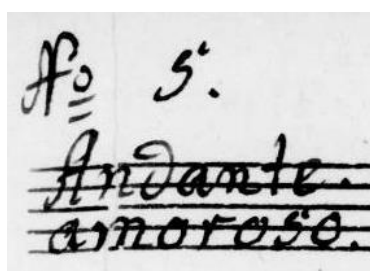 No 5.
Andante.
amoroso.